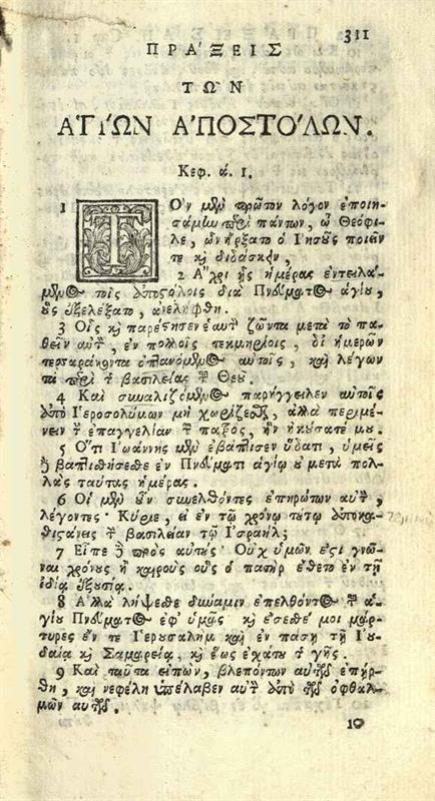 311
ΠΡΑ'ΞΕΙΣ
ΤΩ͂Ν
ΑΓΙ'ΩΝ Α'ΠΟΣΤΟ'ΛΩΝ.
Κεφ. ά. 1.
1 ΤΟν μὲν πρῶτον λόγον ἐποιη-
σάμην περὶ πάντων, ὦ Θεόφι-
λε, ὧν ἤρξατο ὁ Ἰησοῦς ποιεῖν
τε κὶ διδάσκειν,
2 Ἄχρι ἧς ἡμέρας ἐντειλά-
μενος τοῖς ἀποστόλοις διὰ Πνεύματος ἁγίου,
οὓς ἐξελέξατο, ἀνελήφθη.
3 Οἷς κὶ παρέστησεν ἑαυτὸν ζῶντα μετὰ τὸ πα-
θεῖν αὐτὸν, ἐν πολλοῖς τεκμηρίοις, δι' ἡμερῶν
τεσσαράκοντα ὀπτανόμενος αὐτοῖς, καὶ λέγων
τὰ περὶ τῆς βασιλείας τοῦ Θεοῦ.
4 Καὶ συναλιζόμενος παρήγγειλεν αὐτοῖς
ἀπὸ Ἱεροσολύμων μὴ χωρίζεσθαι, ἀλλὰ περιμέ-
νειν τὴν ἐπαγγελίαν τοῦ πατρὸς, ἣν ἠκούσατέ μου.
5 Ὅτι Ἰωάννης μὲν ἐβάπτισεν ὕδατι, ὑμεῖς
δὲ βαπτισθήσεσθε ἐν Πνεύματι ἁγίῳ οὐ μετὰ πολ-
λὰς ταύτας ἡμέρας.
6 Οἱ μὲν οὖν συνελθόντες ἐπηρώτων αὐτὸν,
λέγοντες· Κύριε, εἰ ἐν τῷ χρόνῳ τούτῳ ἀποκα-
θιστάνεις τὴν βασιλείαν τῷ Ἰσραήλ;
7 Εἶπε δὲ πρὸς αὐτούς· Οὐχ ὑμῶν ἐστι γνῶ-
ναι χρόνους ἢ καιροὺς οὓς ὁ πατὴρ ἔθετο ἐν τῇ
ἰδίᾳ ἐξουσίᾳ.
8 Ἀλλὰ λήψεσθε δύναμιν ἐπελθόντος τοῦ ἁ-
γίου Πνεύματος ἐφ' ὑμᾶς· κὶ ἔσεσθέ μοι μάρ-
τυρες ἔν τε Ἱερουσαλὴμ καὶ ἐν πάσῃ τῇ Ἰου-
δαίᾳ κὶ Σαμαρείᾳ, κὶ ἕως ἐσχάτου τῆς γῆς.
9 Καὶ ταῦτα εἰπὼν, βλεπόντων αὐτῶν ἐπήρ-
θη, καὶ νεφέλη ὑπέλαβεν αὐτὸν ἀπὸ τῶν ὀφθαλ-
μῶν αὐτῶν.
10